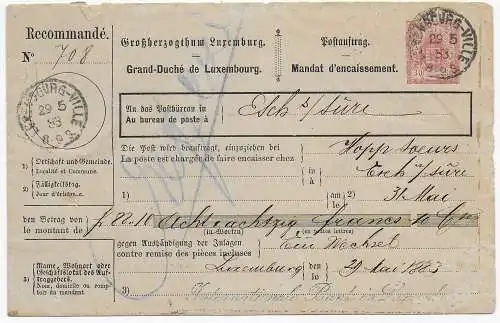 Recommandé.
No 708
Großherzogthum Luxemburg.
Grand-Duché de Luxembourg.
Postauftrag.
Mandat d'encaissement.
LUXEMBOURG-VILLE
29 5
83
8-9S
LUXEMBOURG-VILLE
29 5
83
An das Postbüreau in
Au bureau de poste à
Esch s/sûre
Die Post wird beauftragt, einzuziehen bei
La poste est chargée de faire encaisser chez
Hopp soeurs
in
à
Esch s/sûre
1) Ortschaft und Gemeinde.
Localité et Commune.
2) Fälligkeitstag.
Jour d'échéance.
1)
am
le
2) 31 Mai
den Betrag von
le montant de
fr 88.10 Acht u achtzig francs 10 Cms
(in Worten)
(en toutes lettres)
gegen Aushändigung der Anlagen
contre remise des pièces incluses
Ein Wechsel
3) Name, Wohnort oder
Geschäftslokal des Auftraggebers.
Nom, domicile ou comptoir
du mandant
Luxemburg
den
le
29 Mai 1883
3) Internationale Bank in Luxemburg